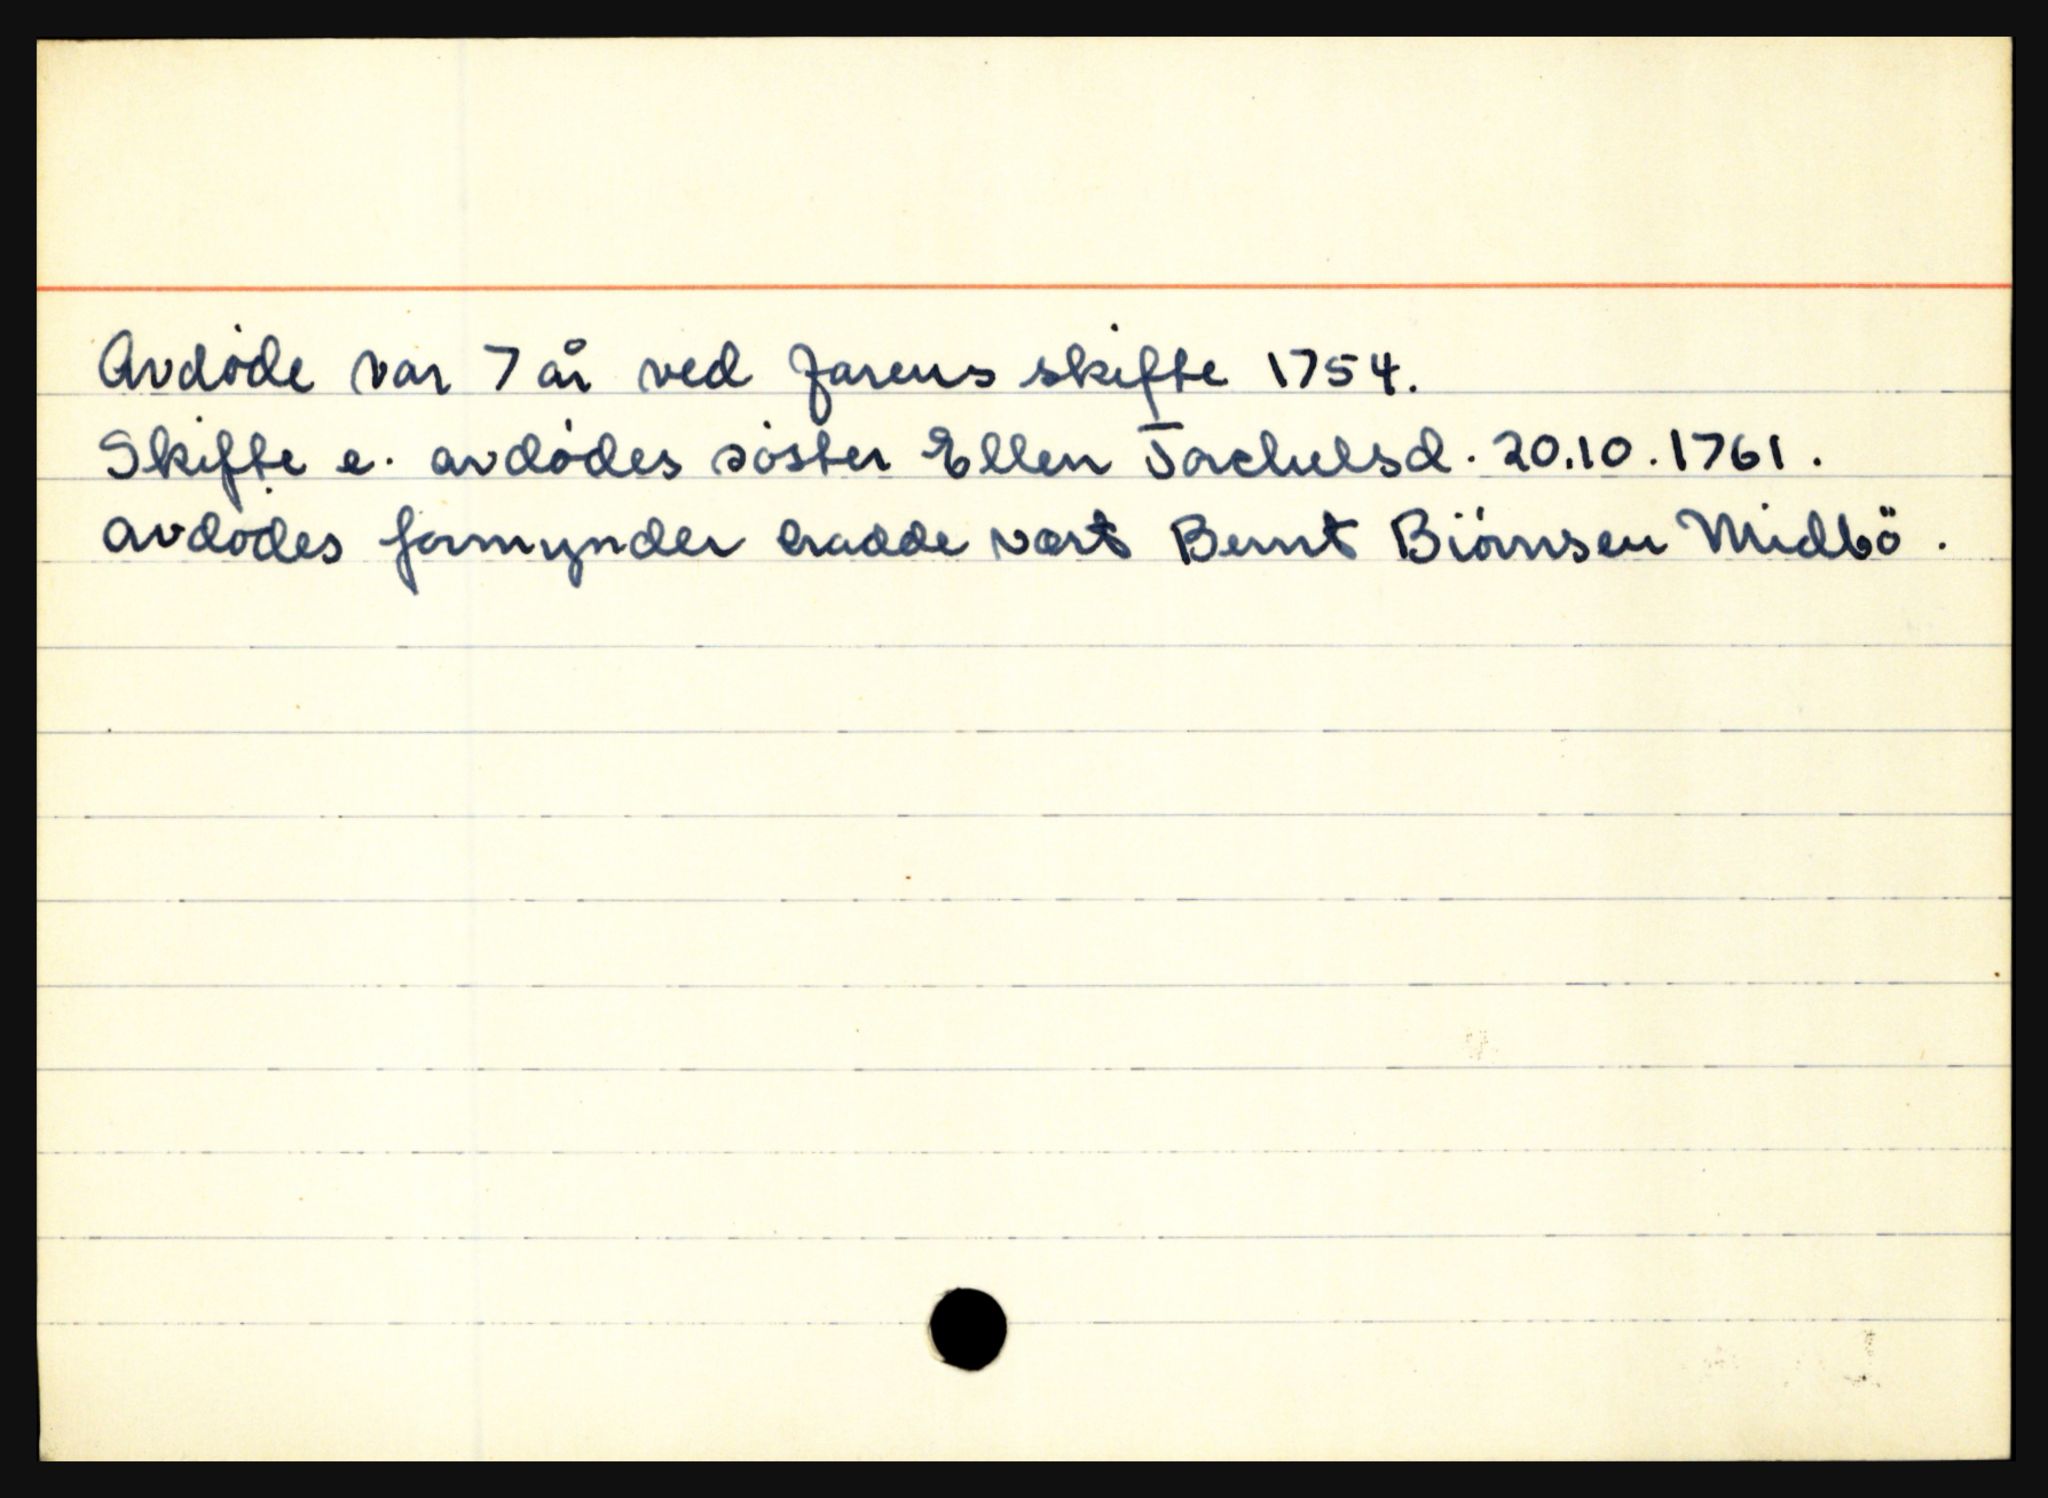 Avdøde var 7 år ved farens skifte 1754.
Skifte e. avdødes søster Ellen Torchelsd. 20.10.1761.
Avdødes formynder hadde vært Bernt Biörnsen Midbö.